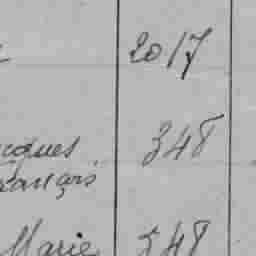 2017
cques 348
rançois
Marie 348